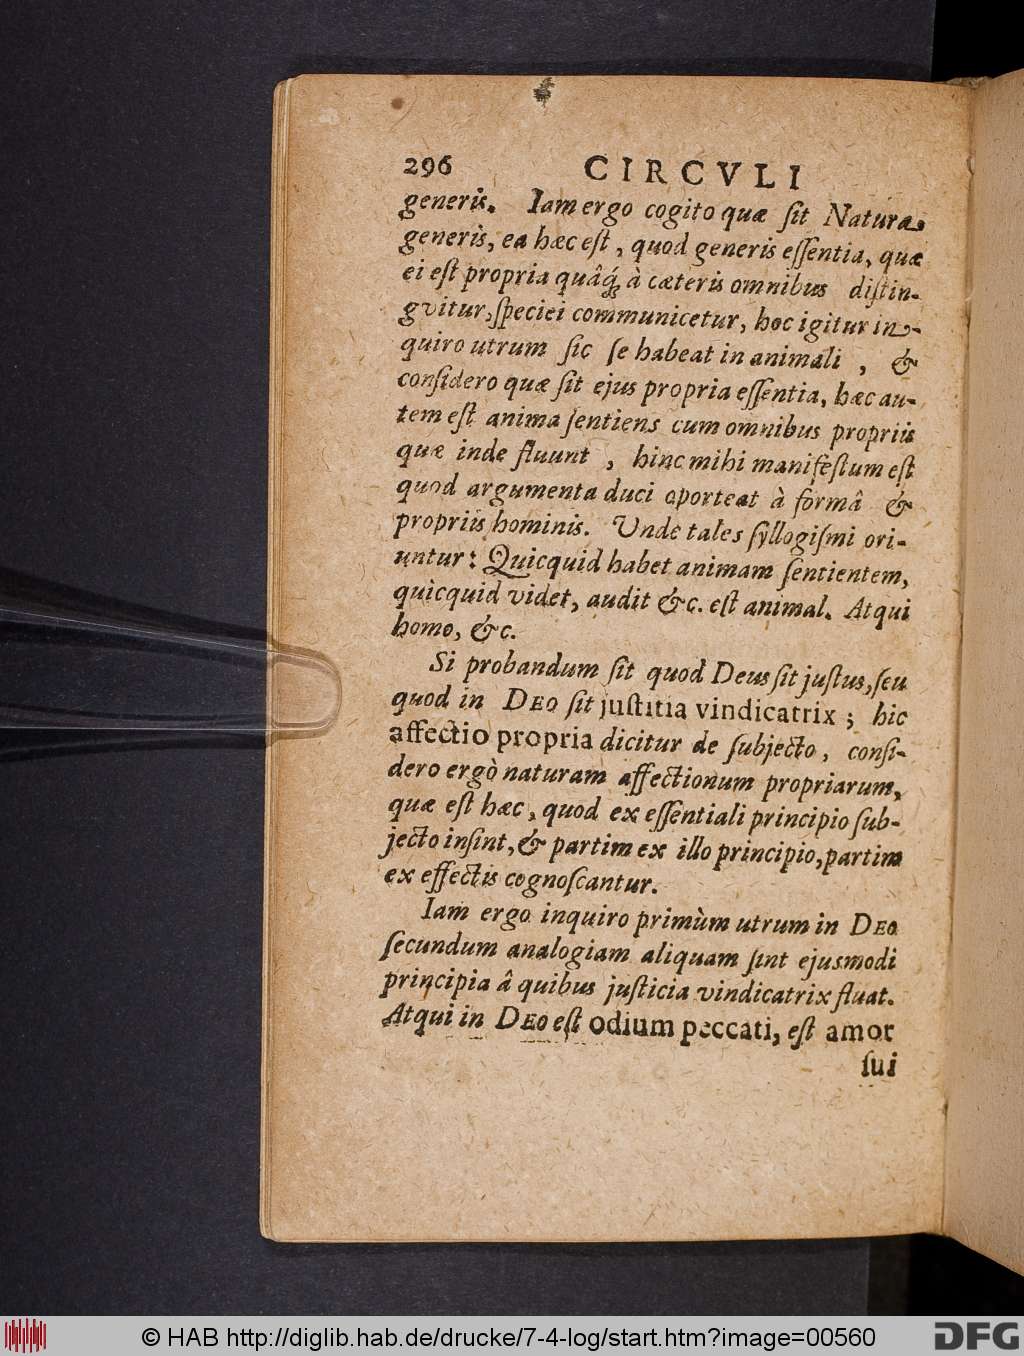 296 CIRCVLI
generis. Iam ergo cogito quæ ſit Natura
generis, ea hæc eſt, quod generis eſſentia, quæ
ei eſt propria quâq́; à cæteris omnibus diſtin-
gvitur, ſpeciei communicetur, hoc igitur in-
quiro utrum ſic ſe habeat in animali, &
conſidero quæ ſit ejus propria eſſentia, hæc au-
tem eſt anima ſentiens cum omnibus propriis
quæ inde fluunt, hinc mihi manifeſtum eſt
quod argumenta duci oporteat à formâ &
propriis hominis. Unde tales ſyllogiſmi ori-
untur: Quicquid habet animam ſentientem,
quicquid videt, audit &c. eſt animal. Atqui
homo, &c.
Si probandum ſit quod Deus ſit juſtus, ſeu
quod in DEO ſit juſtitia vindicatrix; hic
affectio propria dicitur de ſubjecto, conſi-
dero ergò naturam affectionum propriarum,
quæ eſt hæc, quod ex eſſentiali principio ſub-
jecto inſint, & partim ex illo principio, partim
ex effectis cognoſcantur.
Iam ergo inquiro primùm utrum in DEO
ſecundum analogiam aliquam ſint ejusmodi
principia â quibus juſticia vindicatrix fluat.
Atqui in DEO eſt odium peccati, eſt amor
ſui
© HAB http://diglib.hab.de/drucke/7-4-log/start.htm?image=00560
DFG